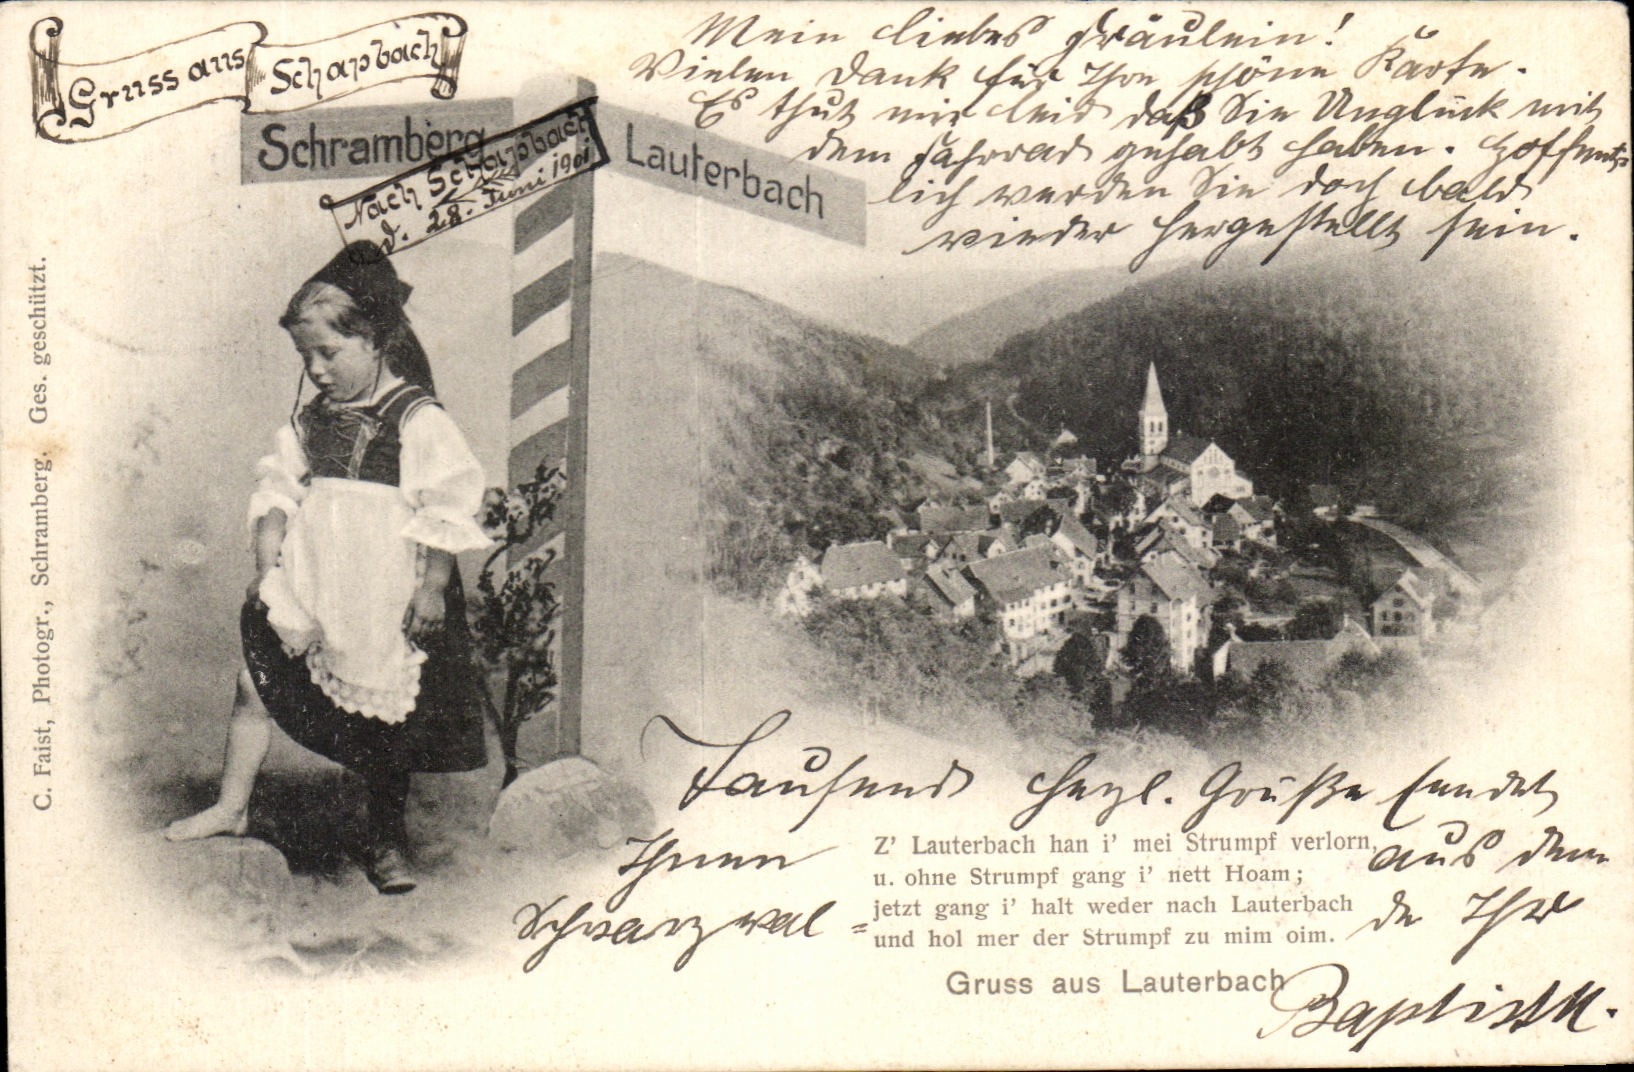 Gruss aus Schapbach
Mein liebes Fräulein!
Vielen Dank für Ihre schöne Karte.
Es thut mir leid daß Sie Unglück mit
dem Fahrrad gehabt haben. Hoffent=
lich werden Sie doch bald
wieder hergestellt sein.
Schramberg
Lauterbach
Nach Schapbach
d. 28. Juni 1901
C. Faist, Photogr., Schramberg. Ges. geschützt.
Tausend herzl. Grüße sendet
Ihnen aus dem
Schwarzwal=
de Ihr
Baptist M.
Z' Lauterbach han i' mei Strumpf verlorn,
u. ohne Strumpf gang i' nett Hoam;
jetzt gang i' halt weder nach Lauterbach
und hol mer der Strumpf zu mim oim.
Gruss aus Lauterbach